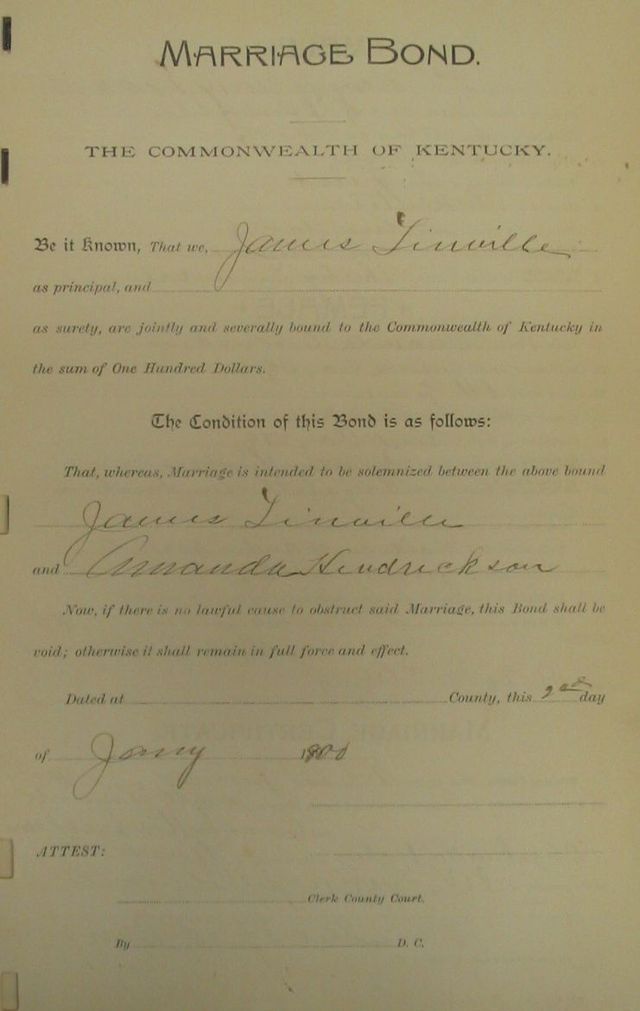 MARRIAGE BOND.
THE COMMONWEALTH OF KENTUCKY.
Be it Known, That we, James Linville
as principal, and
as surety, are jointly and severally bound to the Commonwealth of Kentucky in
the sum of One Hundred Dollars.
The Condition of this Bond is as follows:
That, whereas, Marriage is intended to be solemnized between the above bound
James Linville
and Amanda Hendrickson
Now, if there is no lawful cause to obstruct said Marriage, this Bond shall be
void; otherwise it shall remain in full force and effect.
Dated at County, this 2nd day
of Jany
ATTEST:
Clerk County Court.
By D. C.